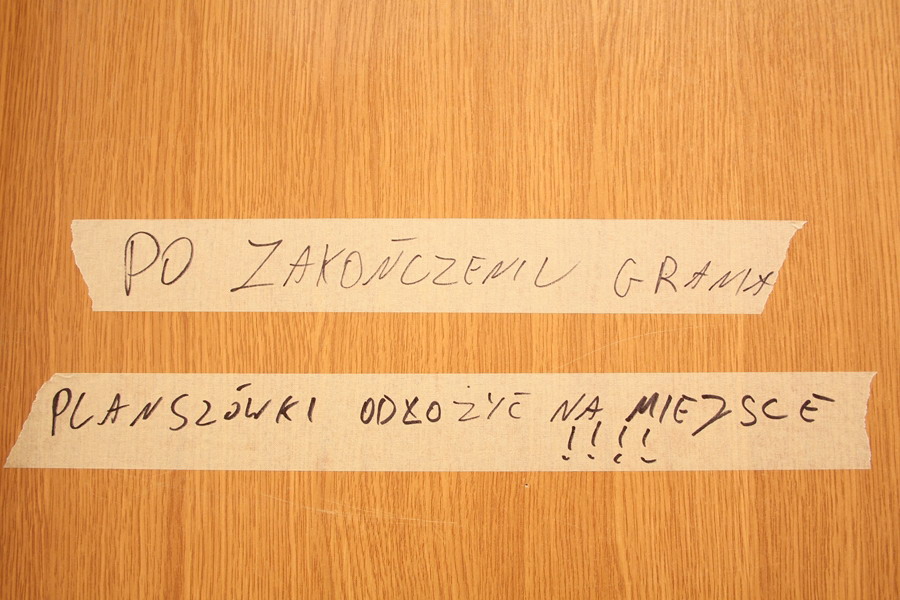 PO ZAKOŃCZENIU GRANIA
PLANSZÓWKI ODŁOŻYĆ NA MIEJSCE
!!!!